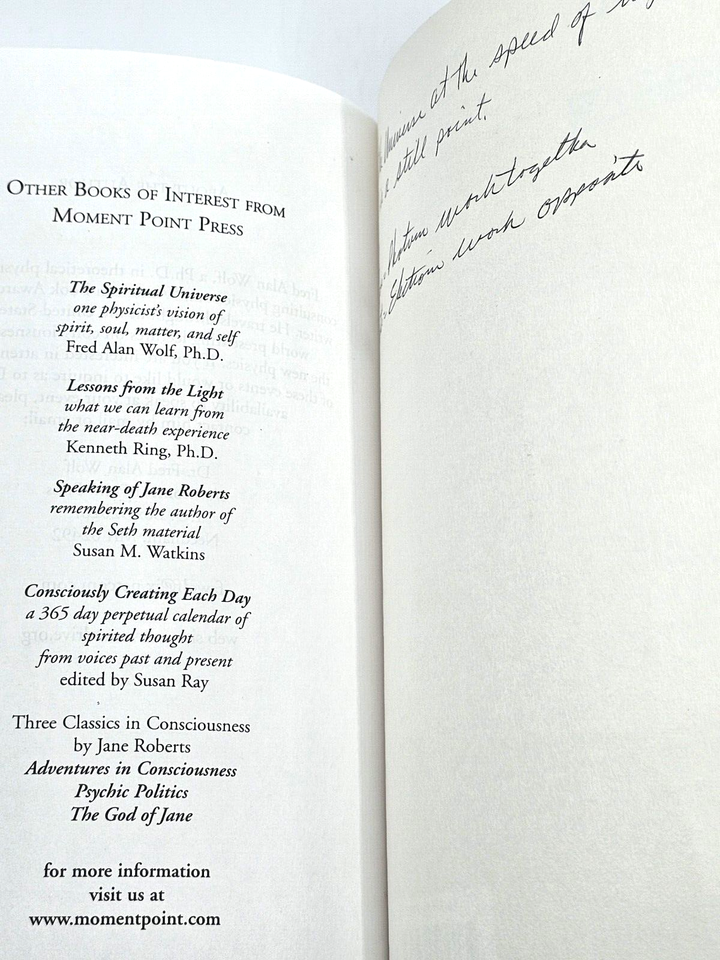 OTHER BOOKS OF INTEREST FROM
MOMENT POINT PRESS
The Spiritual Universe
one physicist's vision of
spirit, soul, matter, and self
Fred Alan Wolf, Ph.D.
Lessons from the Light
what we can learn from
the near-death experience
Kenneth Ring, Ph.D.
Speaking of Jane Roberts
remembering the author of
the Seth material
Susan M. Watkins
Consciously Creating Each Day
a 365 day perpetual calendar of
spirited thought
from voices past and present
edited by Susan Ray
Three Classics in Consciousness
by Jane Roberts
Adventures in Consciousness
Psychic Politics
The God of Jane
for more information
visit us at
www.momentpoint.com
at the speed of
a still point.
work together
work opposite